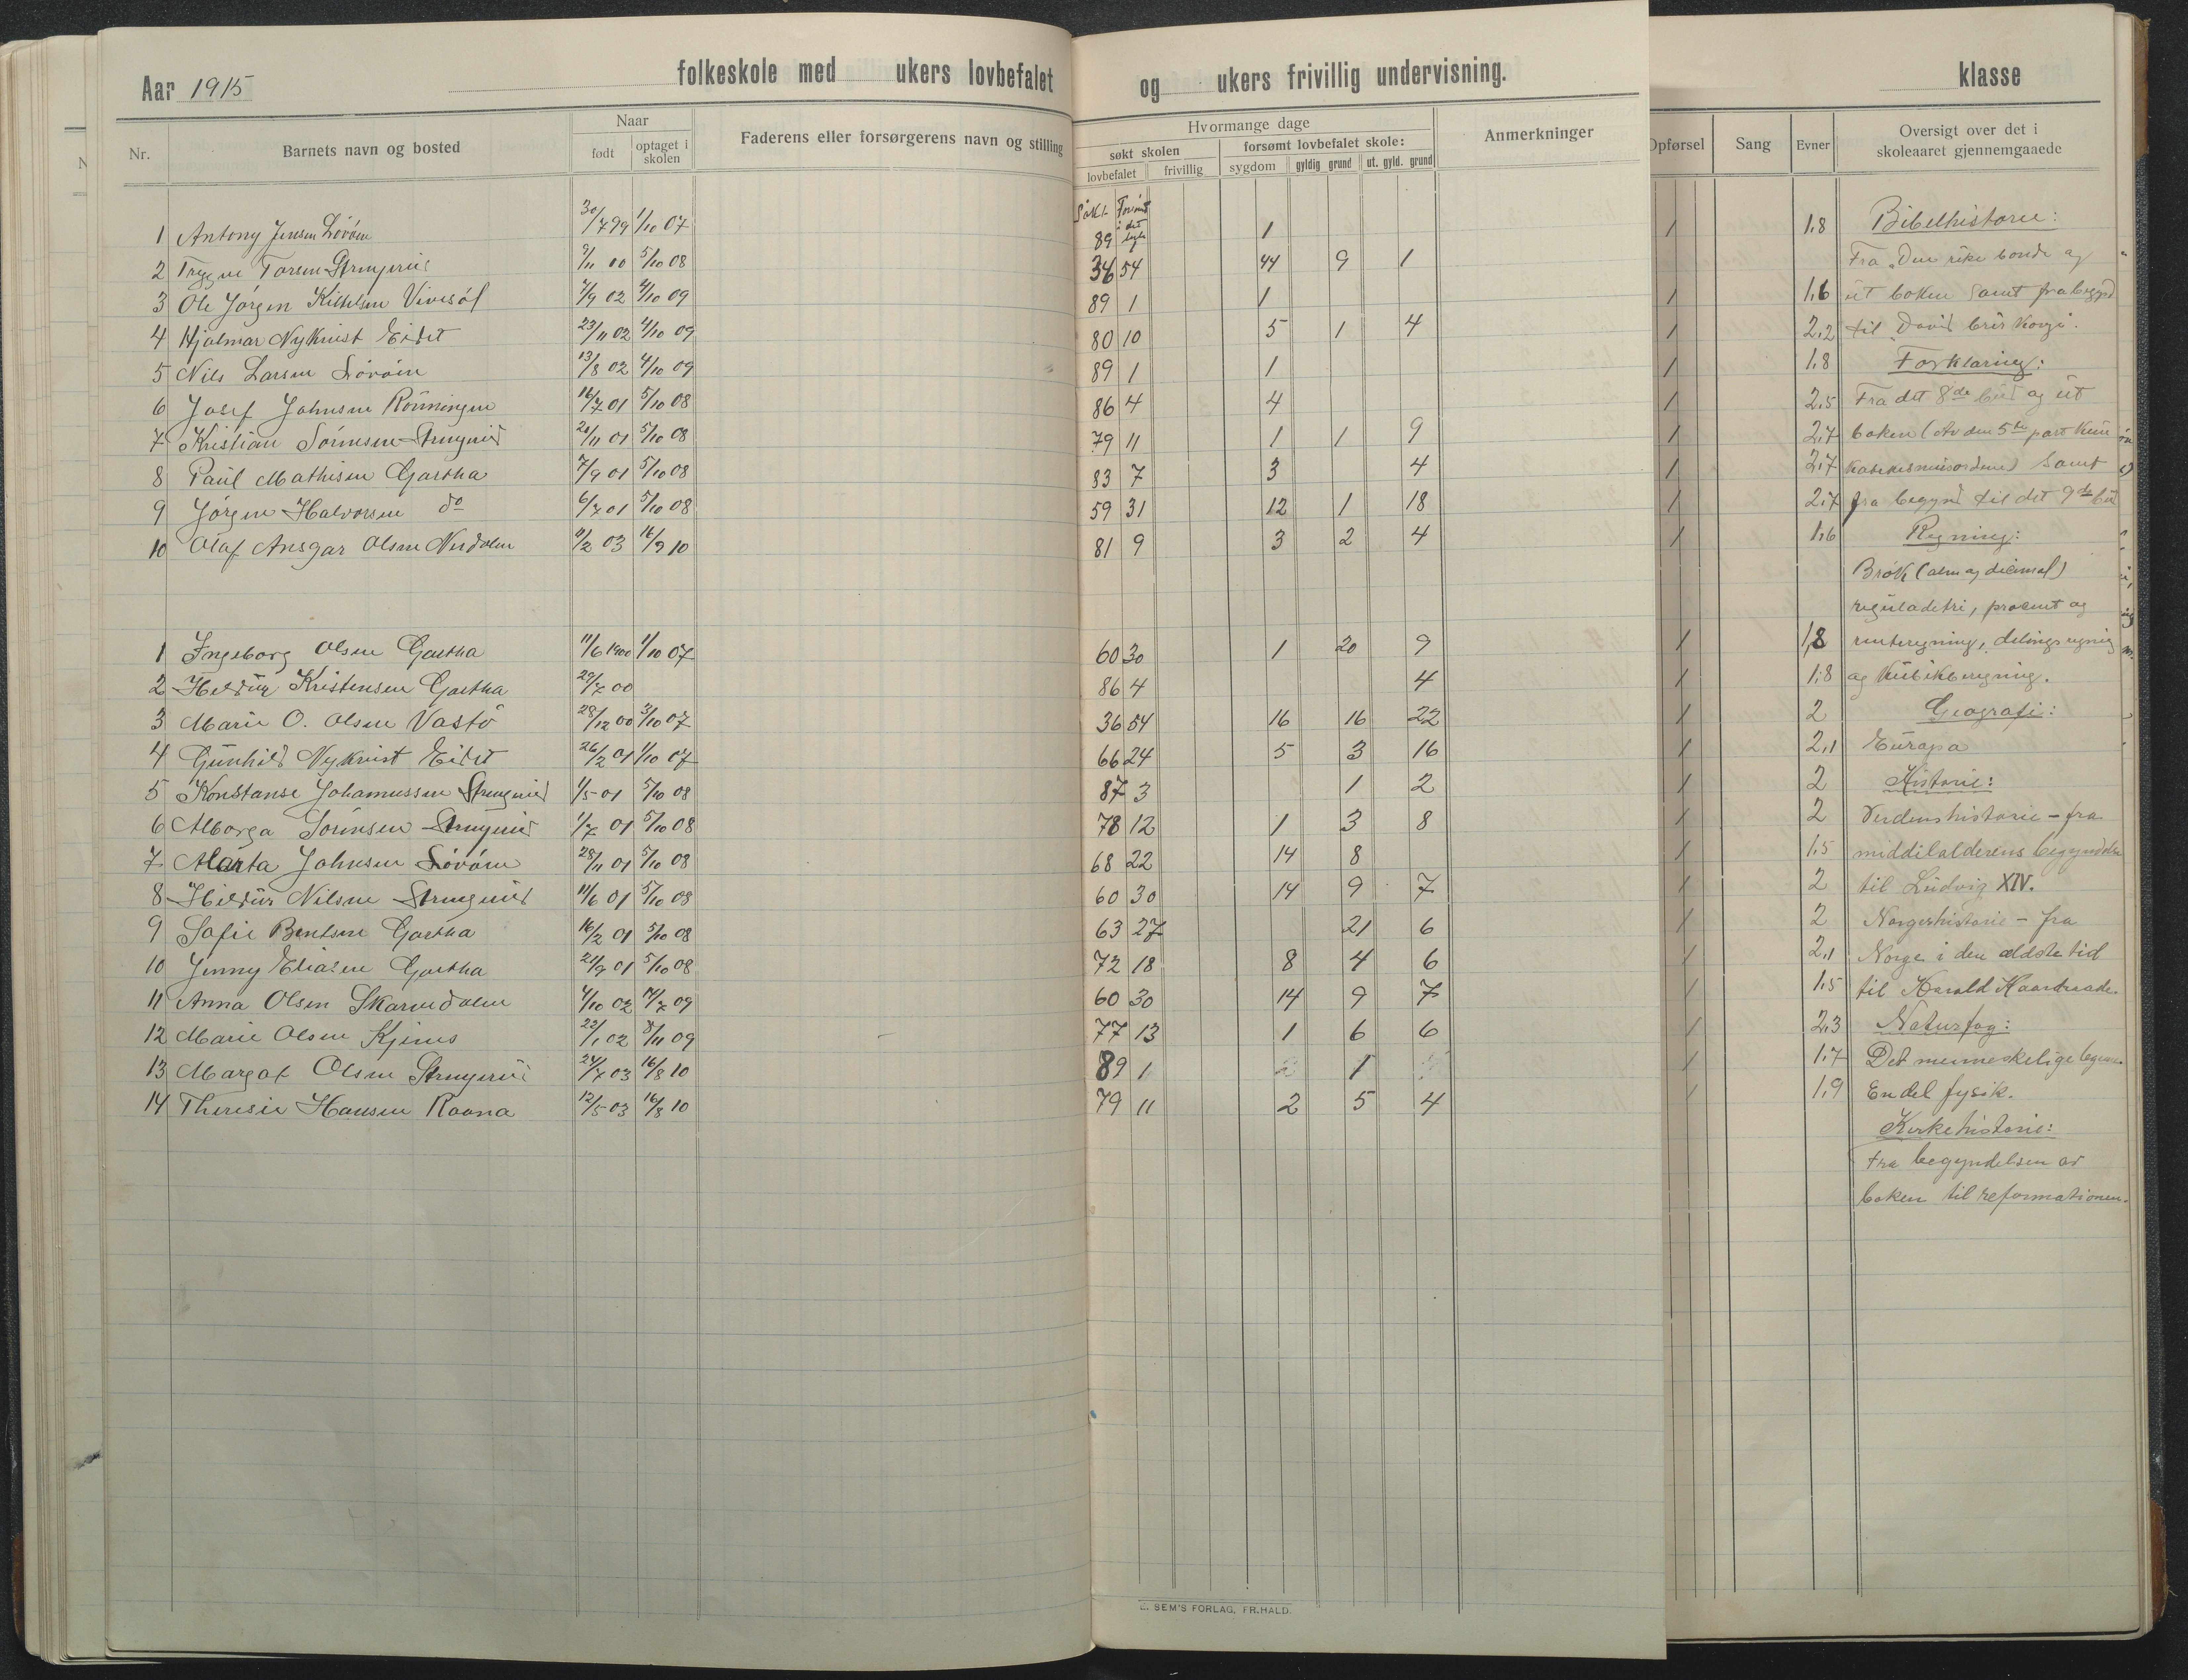 Aar 1915 folkeskole med ukers lovbefalet og ukers frivillig undervisning. klasse
Nr. Barnets navn og bosted Naar født optaget i skolen Faderens eller forsørgerens navn og stilling Hvormange dage søkt skolen lovbefalet frivillig forsømt lovbefalet skole: sygdom gyldig grund ut. gyld. grund Anmerkninger Opførsel Sang Evner Oversigt over det i skoleaaret gjennemgaaede
Søkt Forsømt i det hele
1 Antony Jensen 30/7 99 1/10 07 89 1 1 1.8 Bibelhistorie:
2 Trygve 9/11 00 5/10 08 36 54 44 9 1 Fra "Den rike bonde og
3 Ole Jørgen 7/9 02 4/10 09 89 1 1 1 1.6 ut boken samt fra begynd
4 Hjalmar Nykvist Eidet 23/11 02 4/10 09 80 10 5 1 4 1 2,2 til David blir konge.
5 Nils Larsen 13/8 02 4/10 09 89 1 1 1 1.8 Forklaring:
6 Josef Johnsen Rønningen 16/7 01 5/10 08 86 4 4 1 2.5 Fra det 8de bud og ut
7 Kristian Sørensen 5/10 08 79 11 1 1 9 1 2.7 boken (Av den 5te part kun
8 Paul Mathisen Gartha 7/9 01 5/10 08 83 7 3 4 1 2.7 samt
9 Jørgen Halvorsen do 6/7 01 5/10 08 59 31 12 1 18 1 2.7 fra begynd til det 9de bud
10 Olaf Ansgar Olsen 9/2 03 16/9 10 81 9 3 2 4 1 1.6 Regning:
Brøk (alm og decimal)
reguladetri, procent og
1 Ingeborg Olsen Gartha 11/6 1900 1/10 07 60 30 1 20 9 1 1,8 renteregning, delingsregning
2 Hildur Kristensen Gartha 29/7 00 86 4 4 1 1.8 og kubikberegning.
3 Marie O. Olsen Vastø 28/12 00 3/10 07 36 54 16 16 22 1 2 Geografi:
4 Gunhild Nykvist Eidet 26/2 01 1/10 07 66 24 5 3 16 1 2,1 Europa
5 Konstanse 1/5 01 5/10 08 87 3 1 2 1 2 Historie:
6 Alborga Sørensen 1/7 01 5/10 08 78 12 1 3 8 1 2 Verdenshistorie - fra
7 Marta Johnsen 28/11 01 5/10 08 68 22 14 8 1 1.5 middelalderens begyndelse
8 Hildur Nilsen 11/6 01 5/10 08 60 30 14 9 7 1 2 til Ludvig XIV.
9 Sofie Bentsen Gartha 16/2 01 5/10 08 63 27 21 6 1 2 Norgeshistorie - fra
10 Jenny Eliasen Gartha 21/9 01 5/10 08 72 18 8 4 6 1 2,1 Norge i den ældste tid
11 Anna Olsen Skarvedalen 4/10 02 7/7 09 60 30 14 9 7 1 1.5 til Harald Haardraade
12 Marie Olsen 22/1 02 8/11 09 77 13 1 6 6 1 2.3 Naturfag:
13 Margot Olsen 24/7 03 16/8 10 89 1 1 1 1.7 Det menneskelige legeme.
14 Theresie Hansen Raana 12/5 03 16/8 10 79 11 2 5 4 1 1,9 Endel fysik.
Kirkehistorie:
Fra begyndelsen av
boken til reformationen.
SEM'S FORLAG, FR.HALD.